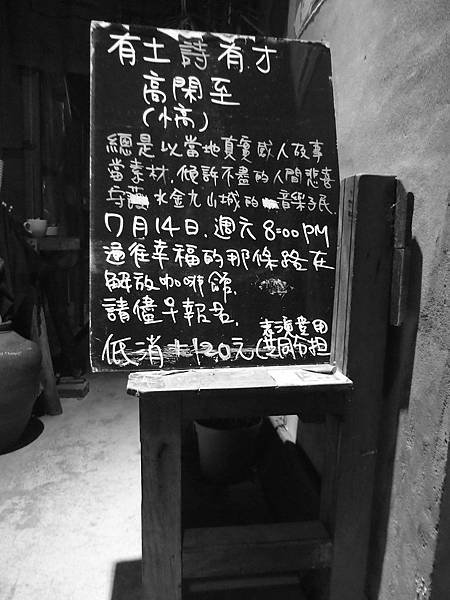 有土詩有才
高閑至
(搞)
總是以當地真實感人故事
當素材.傾訴不盡的人間悲喜
水金九山城的音樂子民.
7月14日.週六 8:00 PM
通往幸福的那條路在
解放咖啡館.
請儘早報名.
表演費用
低消+120元(共同分担